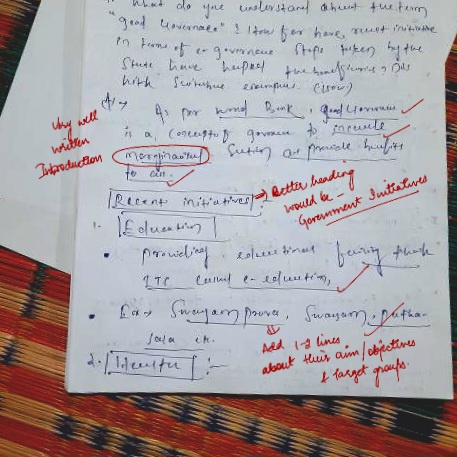 What do you understand about the term
"good Governance"? How far have recent initiative
in terms of e-governence steps taken by the
State have helped the beneficiaries? Dis
with suitable examples (150w)
A) → As per world Bank, good Governance
is a concept of governce to include
marginalised Section & provide benefits
to all.
Very well
written
Introduction
Recent initiatives :-
⇒ Better heading
would be -
Government Initiatives
1. Education
• providing educational through
ITC called e-education,
• Ex → Swayam prava, Swayam,
sala etc.
Add 1-2 lines
about their aim/objectives
& target groups.
2. Health :-